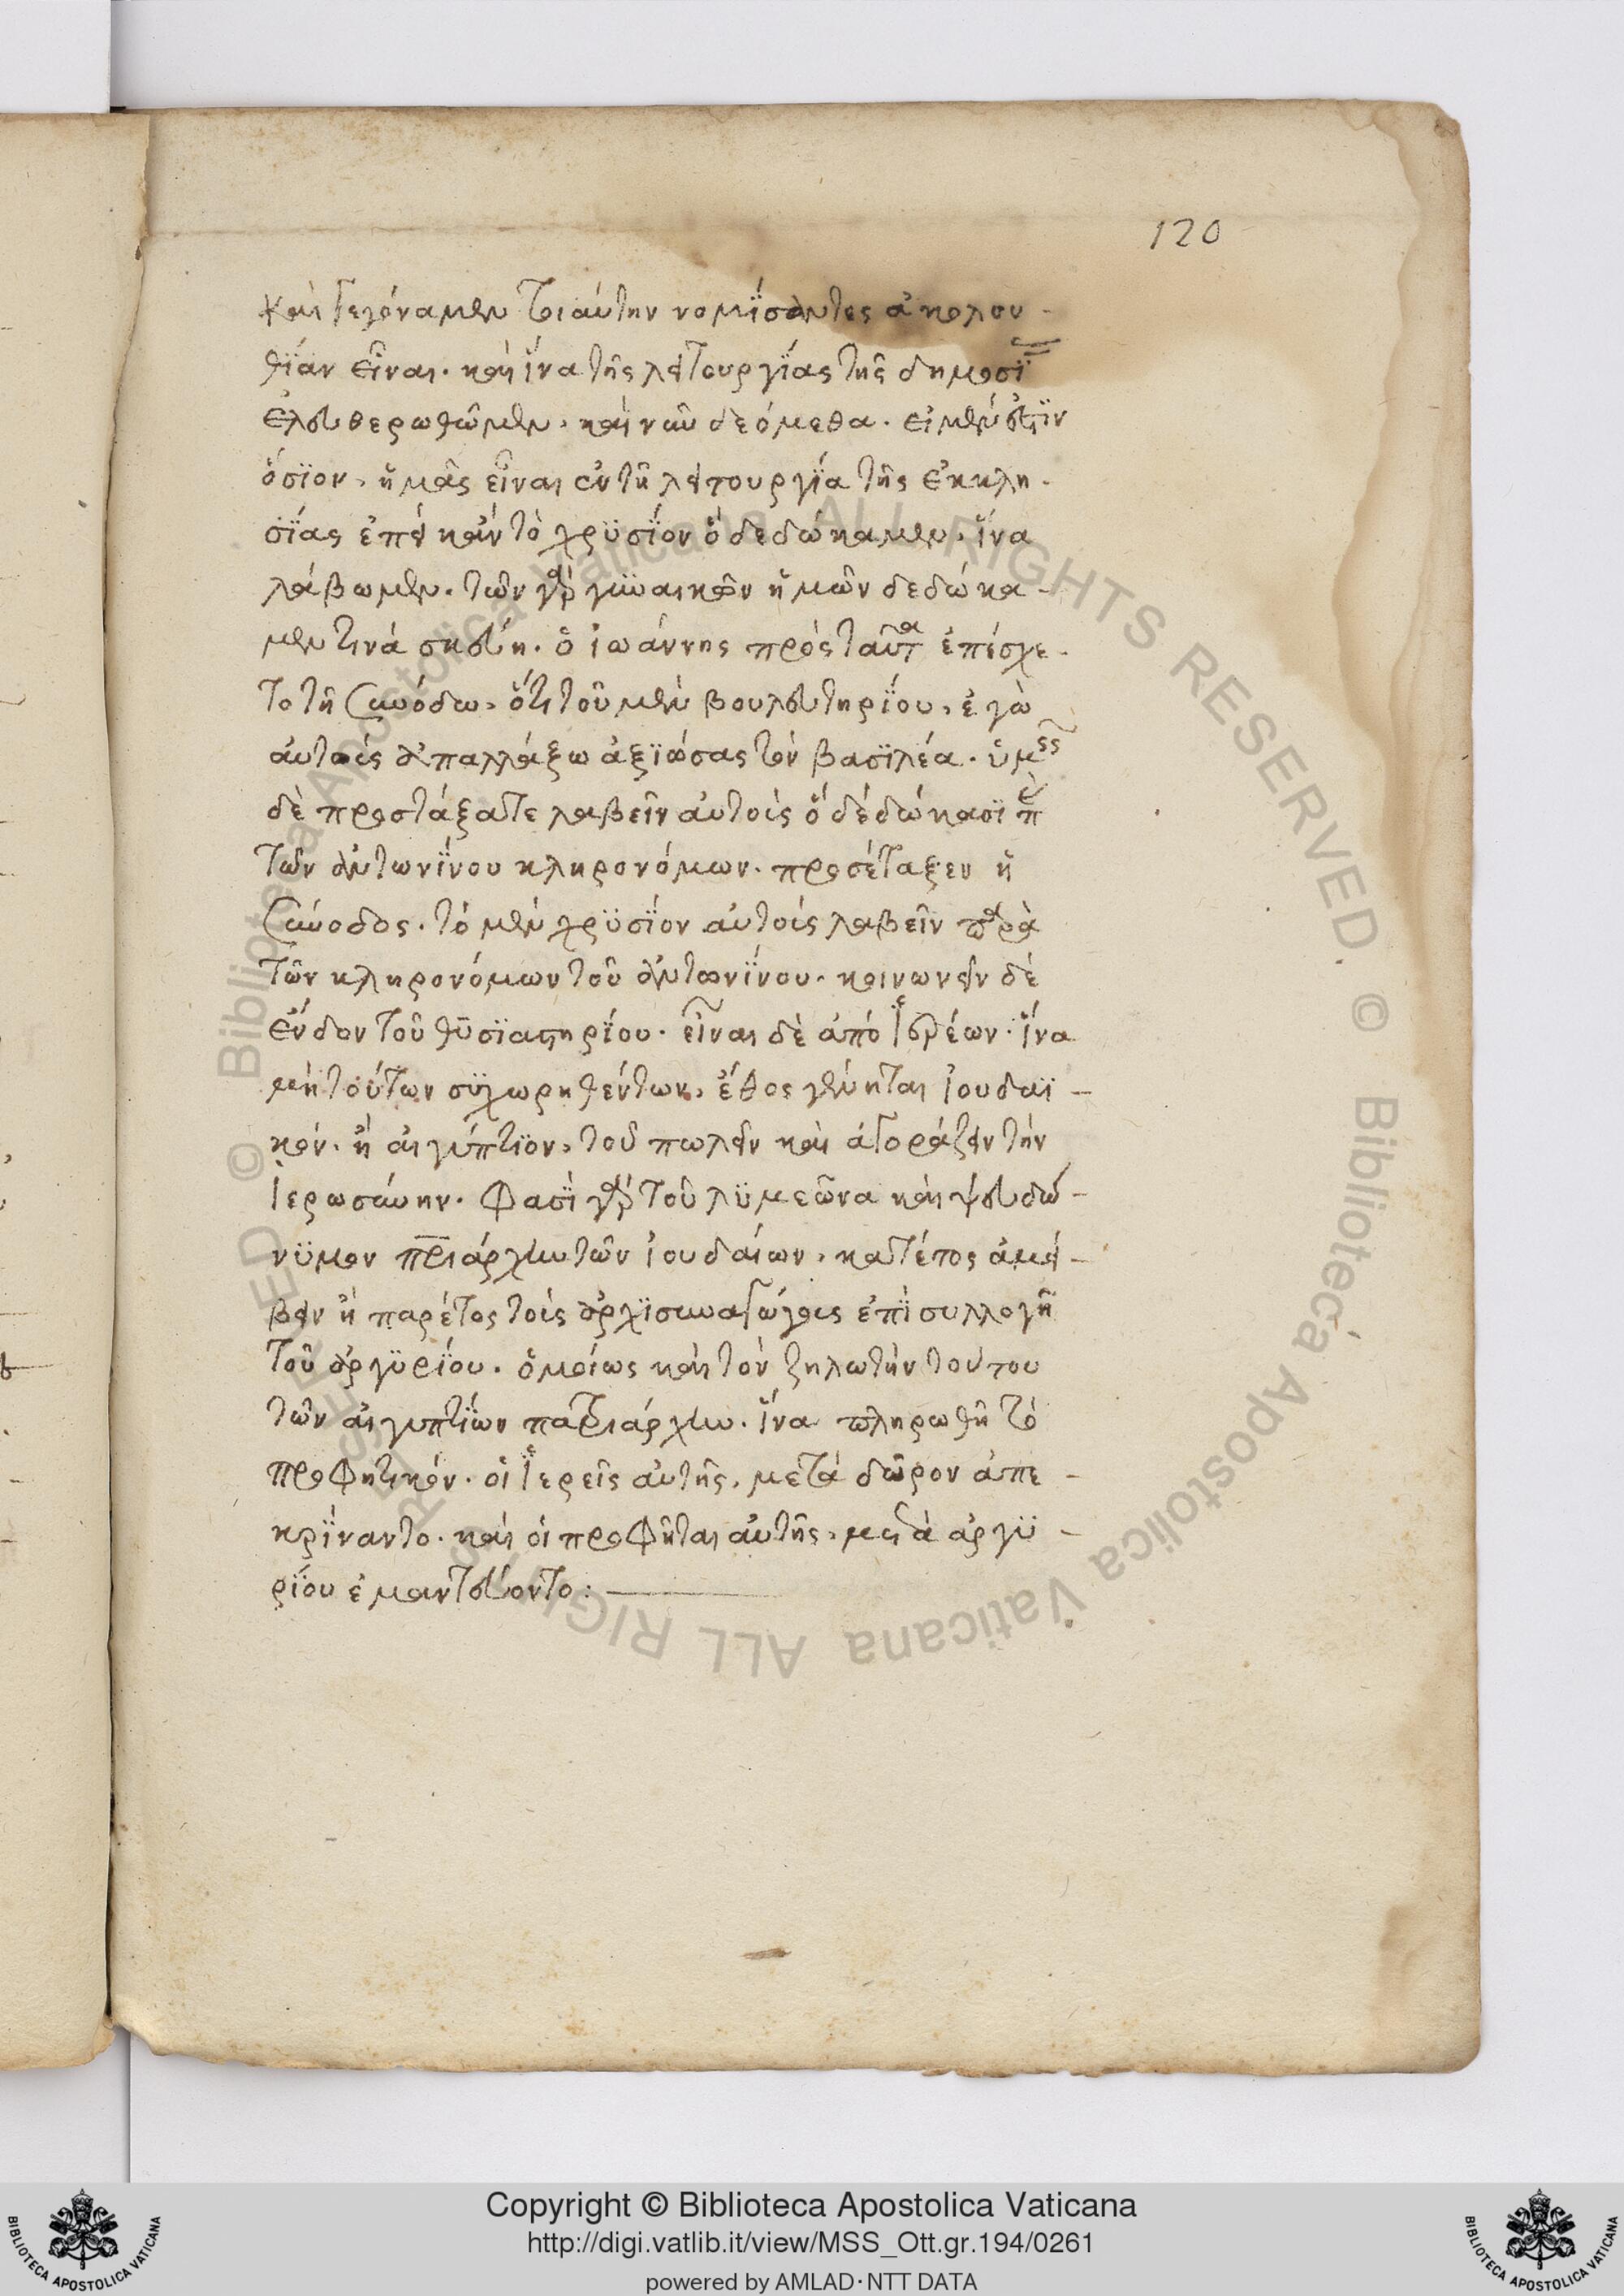 120
καὶ γεγόναμεν τοιαύτην νομΐσαντες ἀκολου-
θΐαν εἶναι. καὶ ἵνα τῆς λειτουργΐας τῆς δημοσΐ
ἐλευθερωθῶμεν. καὶ νῦν δεόμεθα. εἰ μὲν ἐστὶν
ὅσϊον, ἡμᾶς εἶναι ἐν τῆ λειτουργΐα τῆς ἐκκλη-
σΐας ἐπεὶ κἂν τὸ χρϋσΐον ὃ δεδώκαμεν, ἵνα
λάβωμεν. τῶν γὰρ γϋναικῶν ἡμῶν δεδώκα-
μεν τινὰ σκεύη. ὁ ἰωάννης πρὸς ταῦτα ἐπέσχε-
το τῆ συνόδω, ὅτι τοῦ μὲν βουλευτηρΐου, ἐγὼ
αὐτοὺς ἀπαλλάξω ἀξϊώσας τὸν βασϊλέα. ὑμεῖς
δὲ προστάξατε λαβεῖν αὐτοὺς ὃ δεδώκασϊ
τῶν ἀντωνΐνου κληρονόμων. προσέταξεν ἡ
σύνοδος. τὸ μὲν χρϋσΐον αὐτοὺς λαβεῖν παρὰ
τῶν κληρονόμων τοῦ ἀντωνΐνου. κοινωνεῖν δὲ
ἔνδον τοῦ θϋσϊαστηρΐου. εἶναι δὲ ἀπὸ ἱερέων. ἵνα
μὴ τούτων συγχωρηθέντων, ἔθος γένηται ἰουδαϊ-
κὸν. ἢ αἰγύπτϊον, τοῦ πωλεῖν καὶ ἀγοράζειν τὴν
ἱερωσύνην. φασῒ γὰρ τοῦ λϋμεῶνα καὶ ψευδώ-
νϋμον πριάρχην τῶν ἰουδαίων, κατέτος ἀμεί-
βειν ἢ παρέτος τοὺς ἀρχϊσυναγώγους ἐπῒ συλλογῆ
τοῦ ἀργϋρΐου. ὁμοίως καὶ τὸν ζηλωτὴν τούτου
τῶν αἰγυπτΐων πατριάρχην. ἵνα πληρωθῆ τὸ
προφητικὸν. οἱ ἱερεῖς αὐτῆς, μετὰ δῶρον ἀπε-
κρΐναντο. καὶ οἱ προφῆται αὐτῆς, μετὰ ἀργϋ-
ρΐου ἐμαντεύοντο:
© Biblioteca Apostolica Vaticana ALL RIGHTS RESERVED
Copyright © Biblioteca Apostolica Vaticana
http://digi.vatlib.it/view/MSS_Ott.gr.194/0261
powered by AMLAD·NTT DATA
BIBLIOTECA APOSTOLICA VATICANA
BIBLIOTECA APOSTOLICA VATICANA